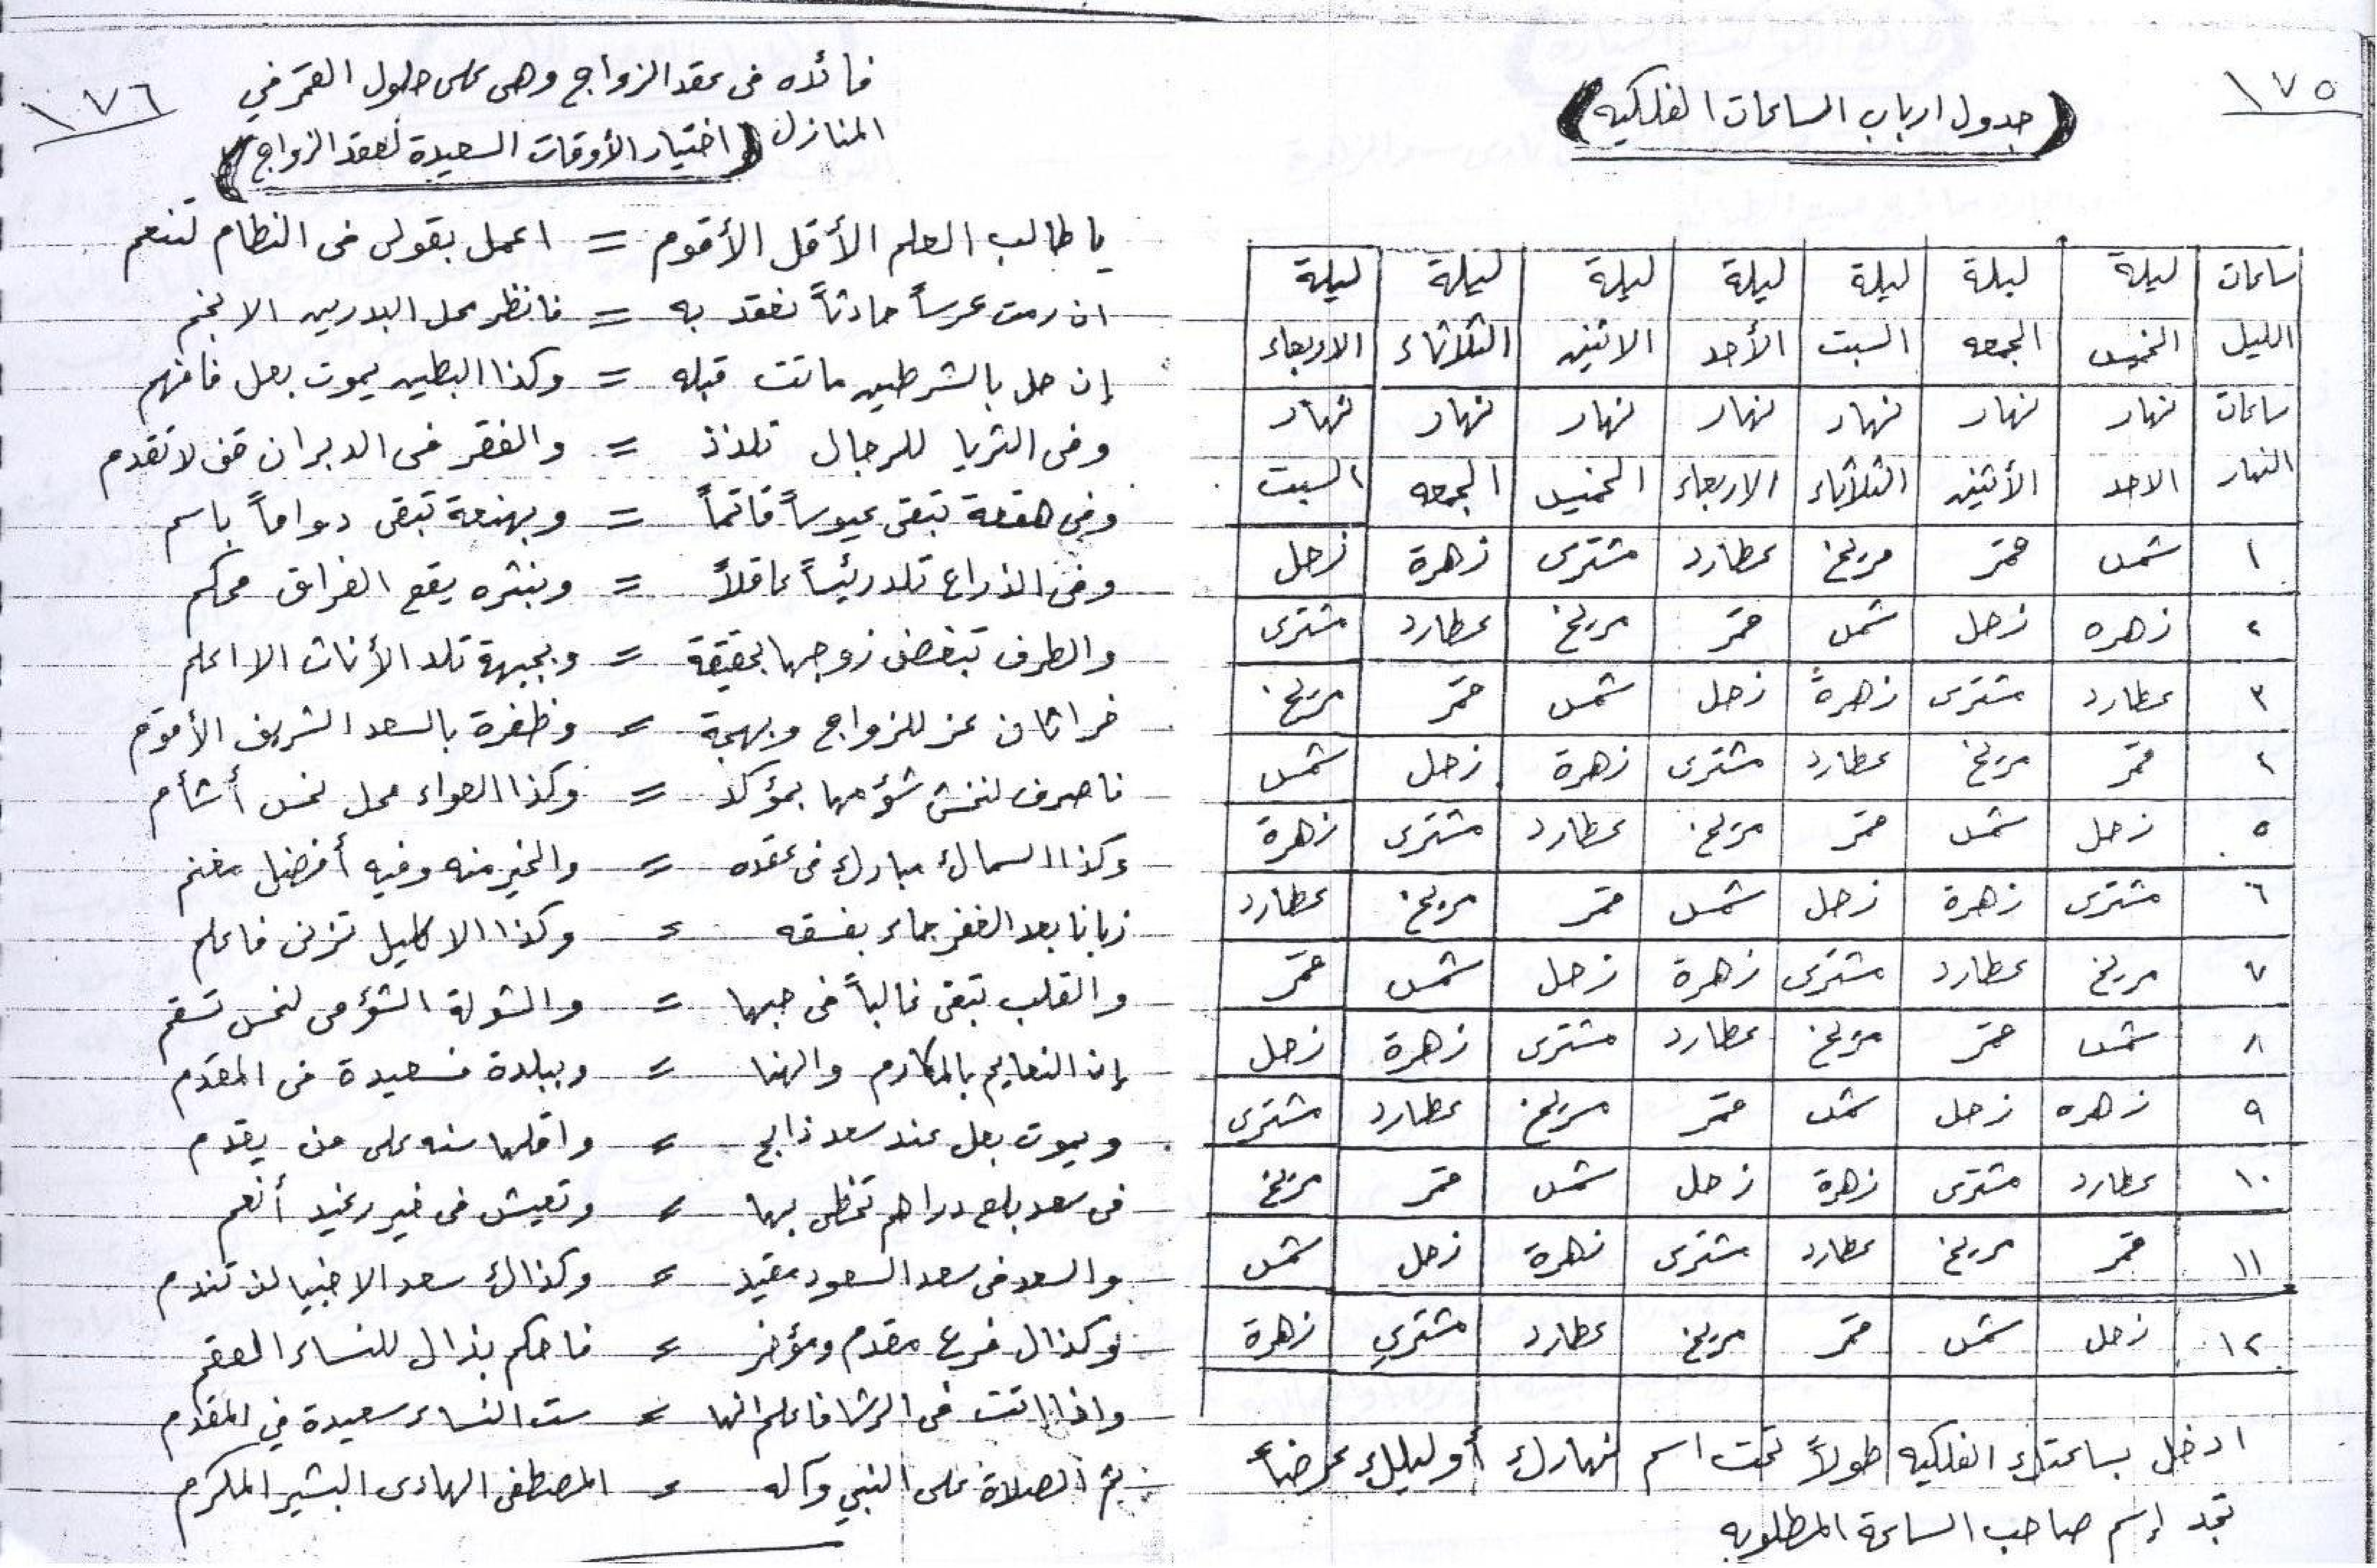 ١٧٥
(جدول ارباب الساعات الفلكيه)
ساعات ليلة ليلة ليلة ليلة ليلة ليلة ليلة
الليل الخميس الجمعه السبت الأحد الاثنين الثلاثاء الاربعاء
ساعات نهار نهار نهار نهار نهار نهار نهار
النهار الاحد الأثنين الثلاثاء الاربعاء الخميس الجمعه السبت
١ شمس قمر مريخ عطارد مشترى زهرة زحل
٢ زهره زحل شمس قمر مريخ عطارد مشترى
٣ عطارد مشترى زهرة زحل شمس قمر مريخ
٤ قمر مريخ عطارد مشترى زهرة زحل شمس
٥ زحل شمس قمر مريخ عطارد مشترى زهرة
٦ مشترى زهرة زحل شمس قمر مريخ عطارد
٧ مريخ عطارد مشترى زهرة زحل شمس قمر
٨ شمس قمر مريخ عطارد مشترى زهرة زحل
٩ زهره زحل شمس قمر مريخ عطارد مشترى
١٠ عطارد مشترى زهرة زحل شمس قمر مريخ
١١ قمر مريخ عطارد مشترى زهرة زحل شمس
١٢ زحل شمس قمر مريخ عطارد مشتري زهرة
ادخل بساعتك الفلكيه طولاً تحت اسم نهارك أو ليلك عرضاً
تجد إسم صاحب الساعة المطلوبه
١٧٦
فائده فى عقد الزواج وهى على حلول القمر في
المنازل (اختيار الأوقات السعيدة لعقد الزواج)
يا طالب العلم الأقل الأقوم = اعمل بقولى فى النظام لتنعم
ان رمت عرساً حادثاً نعقد به = فانظر محل البدر بين الانجم
إن حل بالشرطين ماتت قبله = وكذا البطين يموت بعل فافهم
وفى الثريا للرجال تلذذ = والفقر فى الدبران قف لا تقدم
وفى هقعة تبقى عبوساً قاتماً = وبهنعة تبقى دواماً باسم
وفى الذراع تلد رئيساً عاقلاً = وبنثره يقع الفراق محكم
والطرف تبغض زوجها بحقيقة = وبجبهة تلد الأناث الا اعلم
خراتان عز للزواج وبهجة = وظفرة بالسعد الشريف الأقوم
ناصرف لنخش شؤمها بمؤكد = وكذا العواء محل نحس أشأم
وكذا السماك مبارك فى عقده = والخير منه وفيه أفضل مغنم
زبانا بعد الغفر جاء بفسقه = وكذا الاكليل تزنى فاعلم
والقلب تبقى غالباً فى حبها = والشولة الشؤمى لنحس تسقم
إن النعايم بالمكارم والهنا = وببلدة فسعيدة فى المقدم
ويموت بعل عند سعد ذابح = واقلها سنه على من يقدم
فى سعد بلع دراهم تحظى بها = وتعيش فى خير رغيد أنعم
والسعد فى سعد السعود مقيد = وكذاك سعد الاخبيا لن تندم
وكذا ال فرع مقدم ومؤخر = فاحكم بذال للنساء العقم
واذا اتت فى الرشا فاعلم انها = ست النساء سعيدة في المقدم
ثم الصلاة على النبي وآله = المصطفى الهادى البشير المكرم